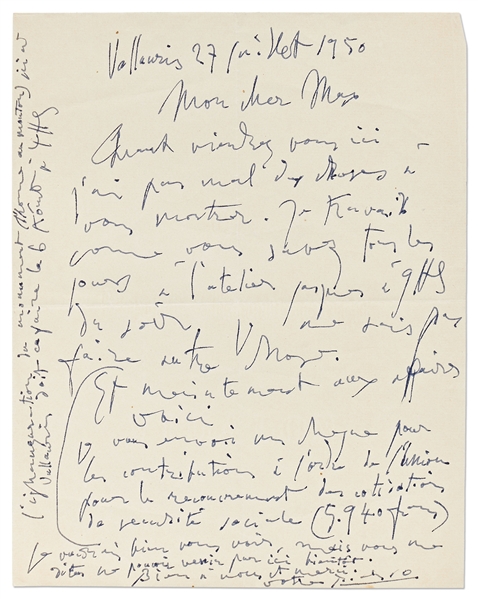 Vallauris 27 juillet 1950
Mon cher Max
Quand viendrez vous ici
j'ai pas mal de choses à
vous montrer. Je travaille
comme vous savez tous les
jours à l'atelier jusques à 9HS
du soir, ne sais pas
faire autre chose.
Et maintenant aux affaires
Voici
je vous envoi un cheque pour
les contributions à l'ordre de l'Union
pour le recouvrement des cotisations
de securité sociale (5.940 frcs)
Je voudrais bien vous voir mais vous me
dites ne pouvoir venir par ici bientôt.
Bien à vous et merci.
votre Picasso
l'ignauguration du monument (Homme au mouton) ici à
Vallauris doit se faire le 6 Aout à 4HS